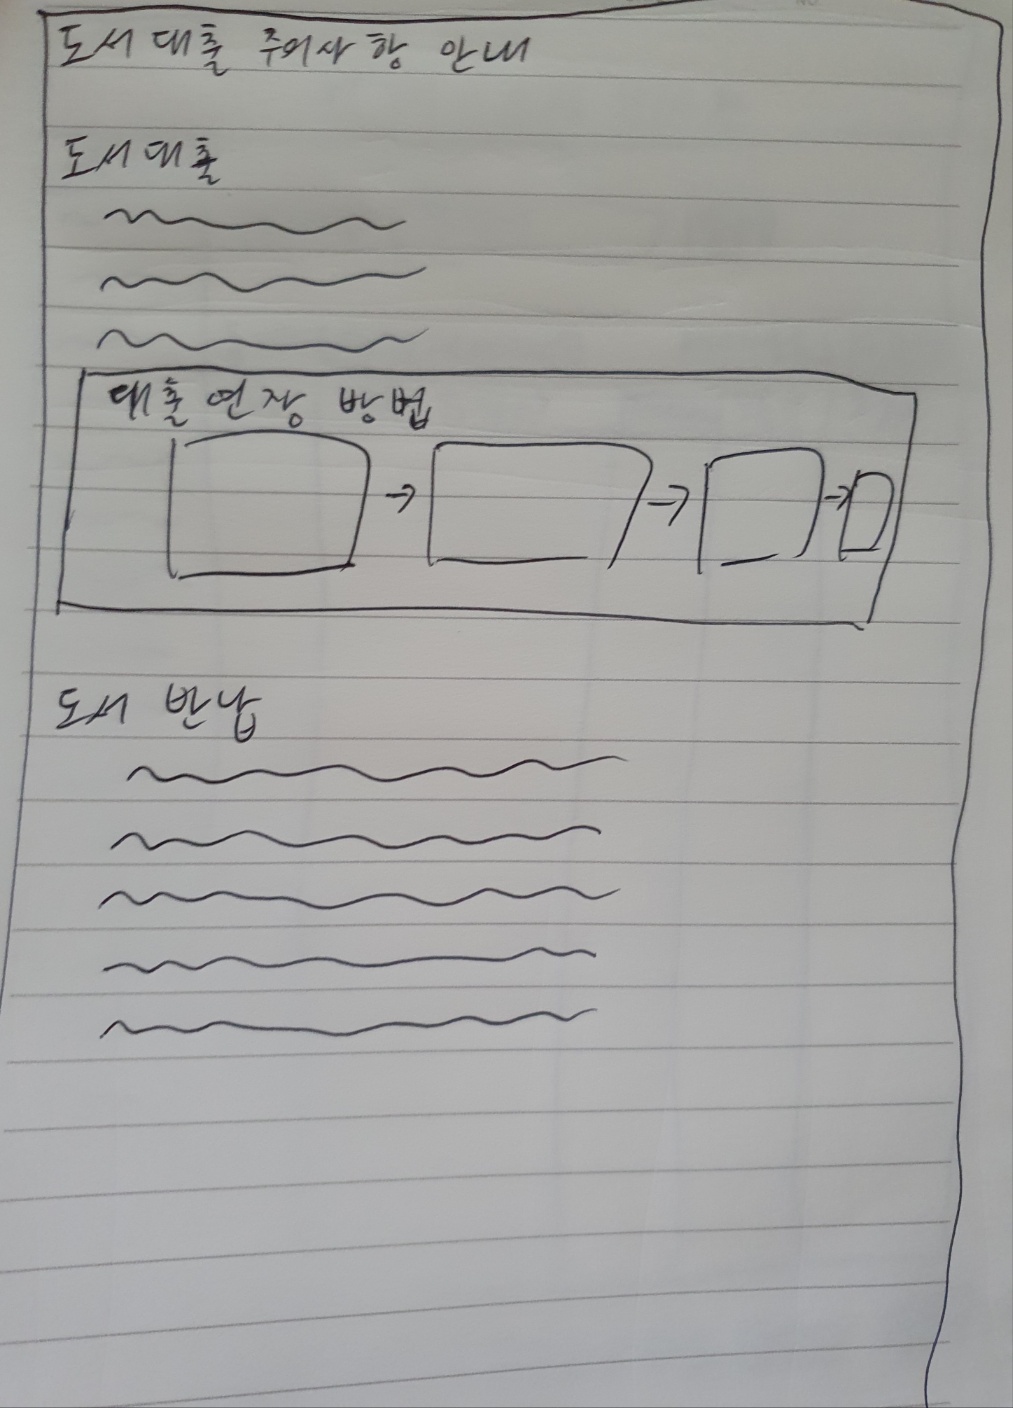 도서대출 주의사항 안내
도서대출
대출연장 방법
도서 반납